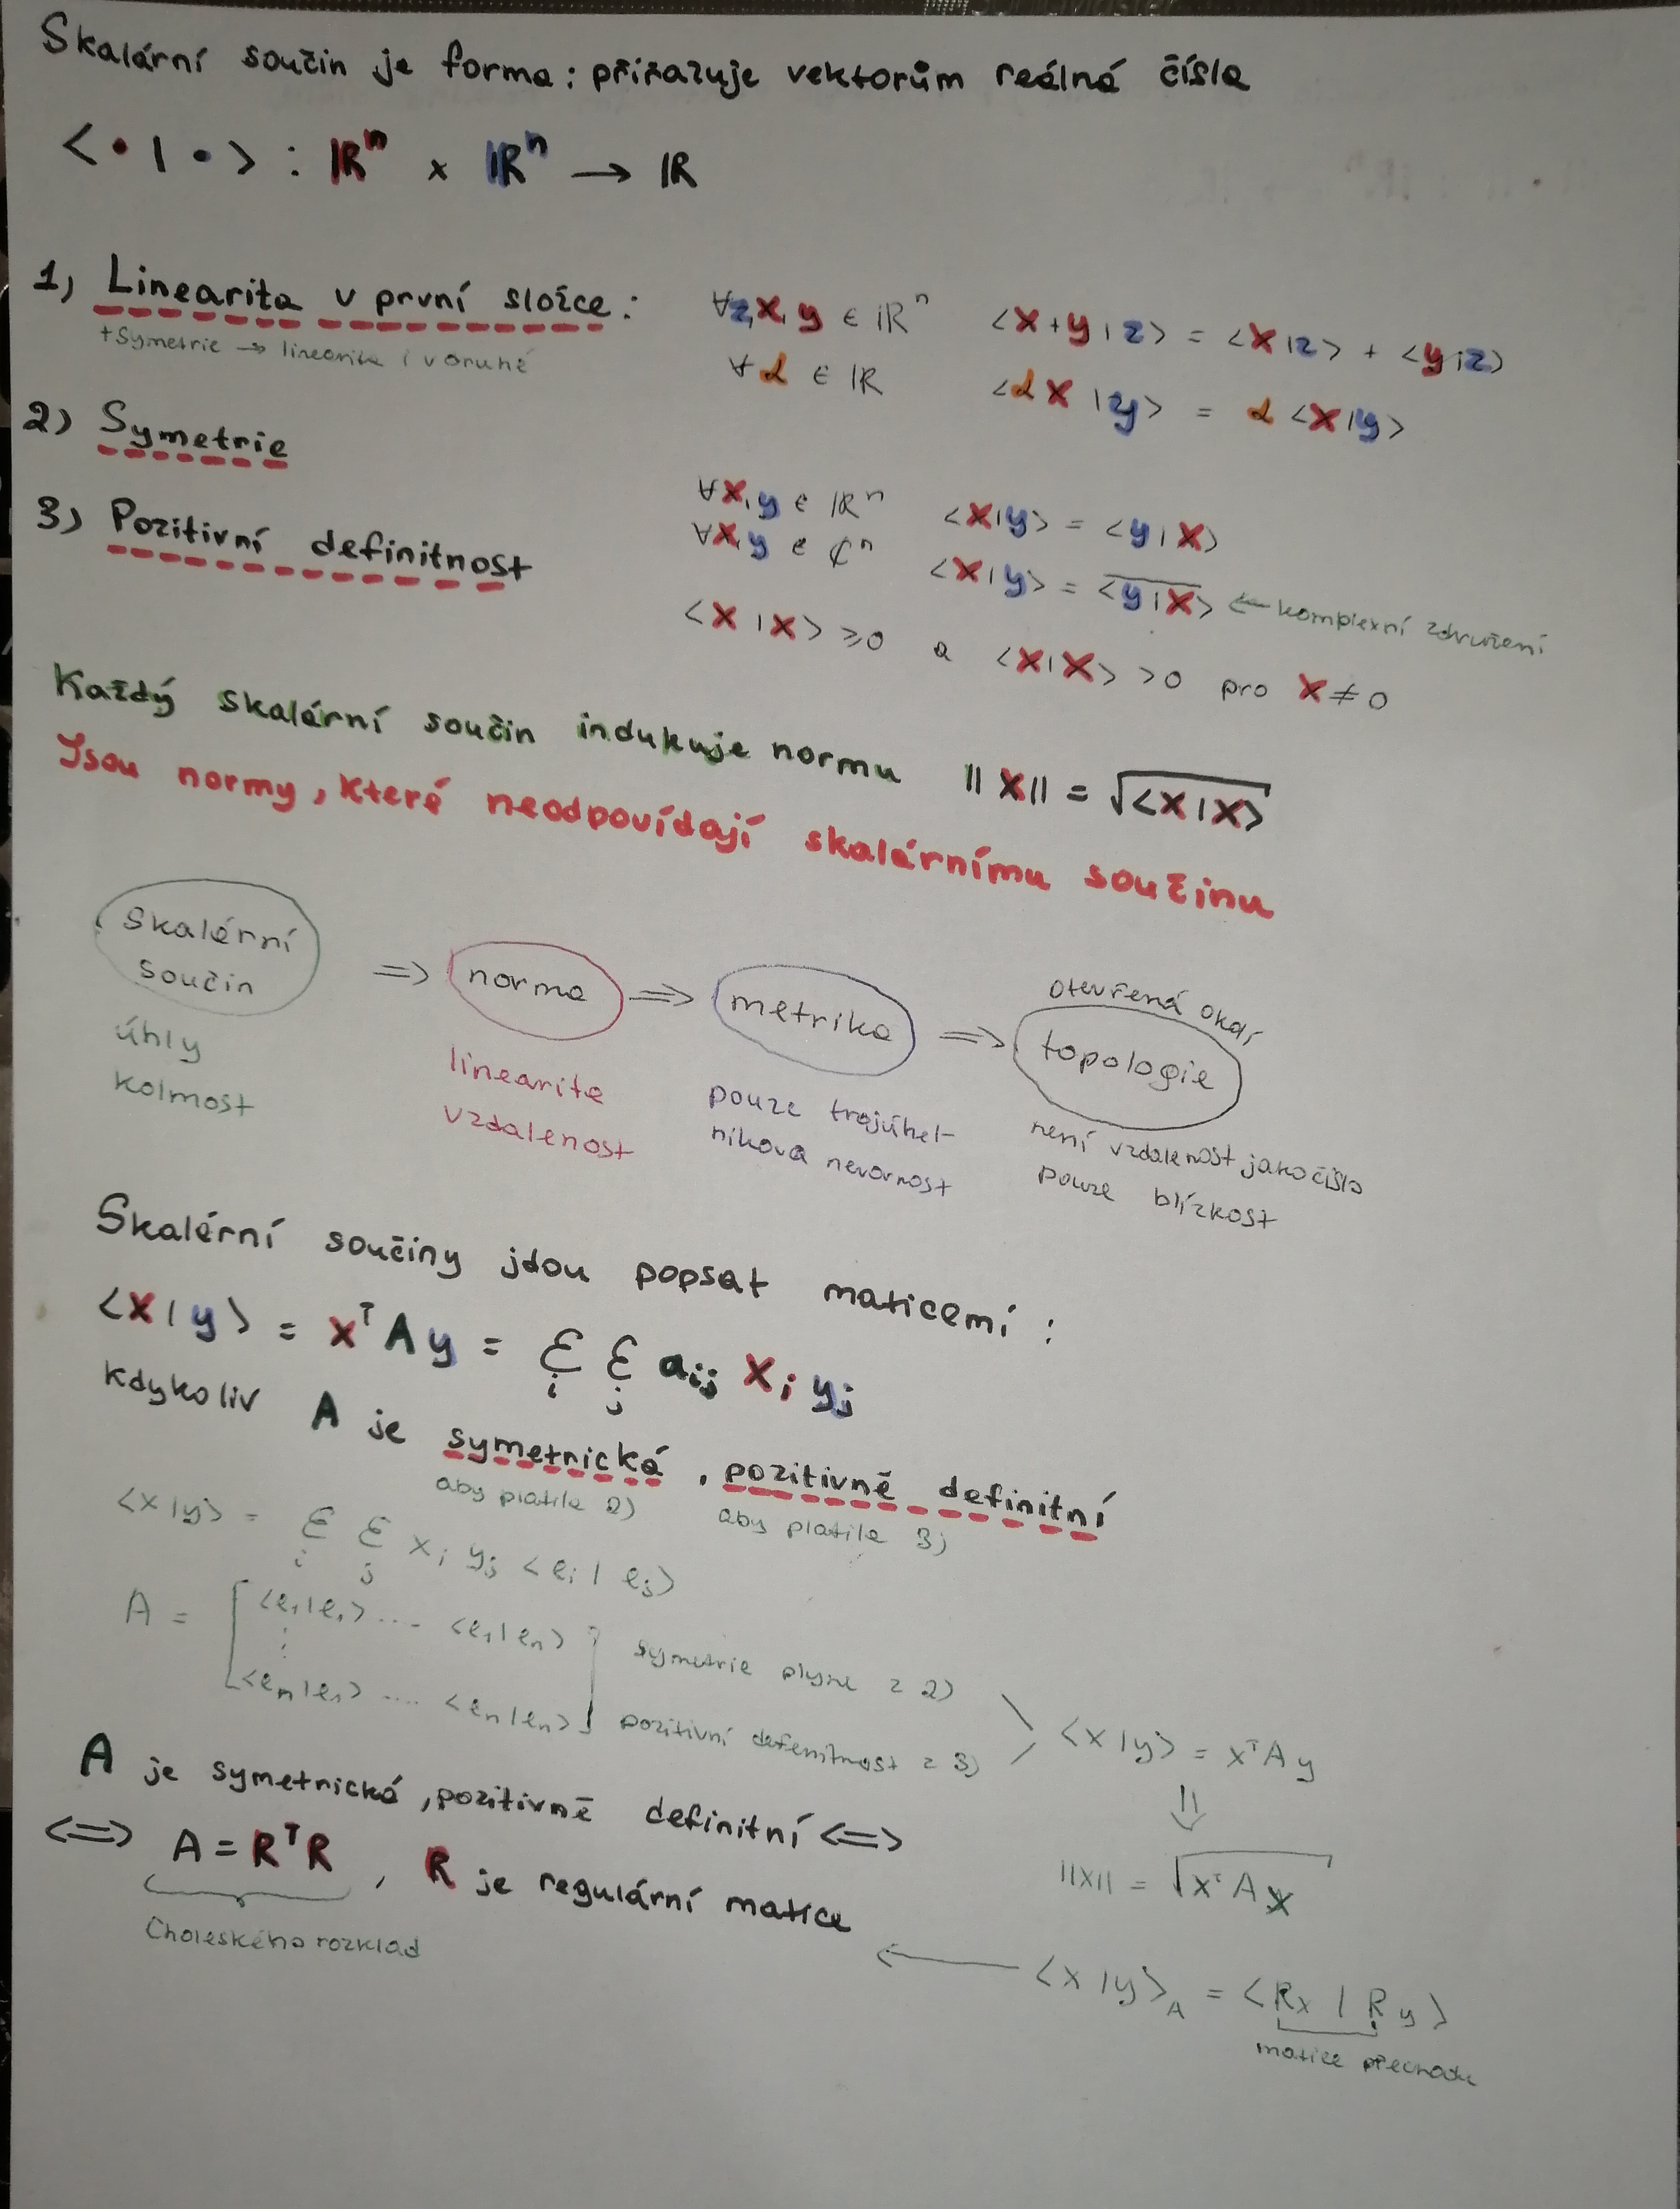 Skalární součin je forma: přiřazuje vektorům reálná čísla
<•|•> : ℝⁿ × ℝⁿ → ℝ
1) Linearita v první složce: ∀z,x,y ∈ ℝⁿ <x+y|z> = <x|z> + <y|z>
+Symetrie → linearita i v druhé ∀α ∈ ℝ <αx|y> = α<x|y>
2) Symetrie ∀x,y ∈ ℝⁿ <x|y> = <y|x>
∀x,y ∈ ℂⁿ <x|y> = \overline{<y|x>} ← komplexní združení
3) Pozitivní definitnost <x|x> ≥0 a <x|x> >0 pro x≠0
Každý skalární součin indukuje normu ||x|| = √<x|x>
Jsou normy, které neodpovídají skalárnímu součinu
skalární součin ⇒ norma ⇒ metrika ⇒ topologie
otevřená okolí
úhly
kolmost
linearita
vzdalenost
pouze trojúhel-
níková nerovnost
není vzdalenost jako číslo
pouze blízkost
Skalární součiny jdou popsat maticemi :
<x|y> = xᵀAy = Σᵢ Σⱼ aᵢⱼ xᵢ yⱼ
kdykoliv A je symetrická, pozitivně definitní
aby platila 2) aby platila 3)
<x|y> = Σᵢ Σⱼ xᵢ yⱼ <eᵢ|eⱼ>
A = [<e₁|e₁> .... <e₁|eₙ> symetrie plyne z 2)
⋮
<eₙ|e₁> .... <eₙ|eₙ>] pozitivní defenitnost z 3)
<x|y> = xᵀAy
⇓
||x|| = √xᵀAx
A je symetrická, pozitivně definitní <=>
<=> A = RᵀR , R je regulární matice
Choleského rozklad
← <x|y>_A = <Rx|Ry>
matice přechodu